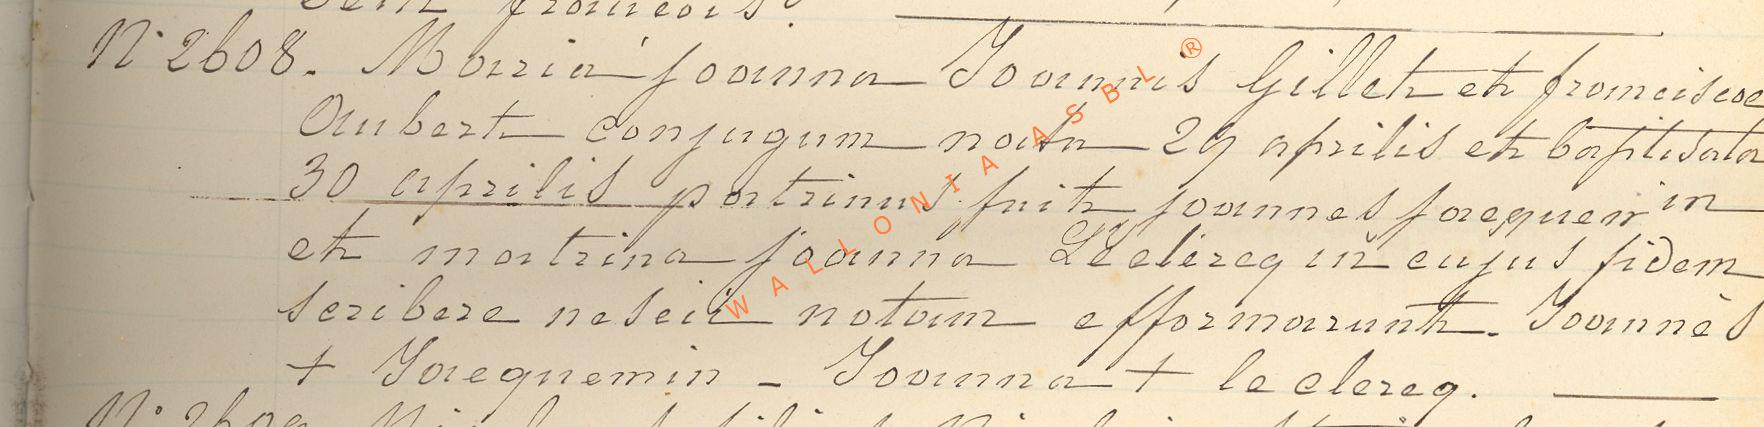 N° 2608. Maria joanna Joannis Gillet et franciscae
Aubert conjugum nata 29 aprilis et baptisata
30 aprilis patrinus fuit joannes jacquemin
et matrina joanna Leclercq in cujus fidem
scribere nescii notam efformarunt. Joannes
+ Jacquemin - Joanna + le clercq.
WALLONIA ASBL ®